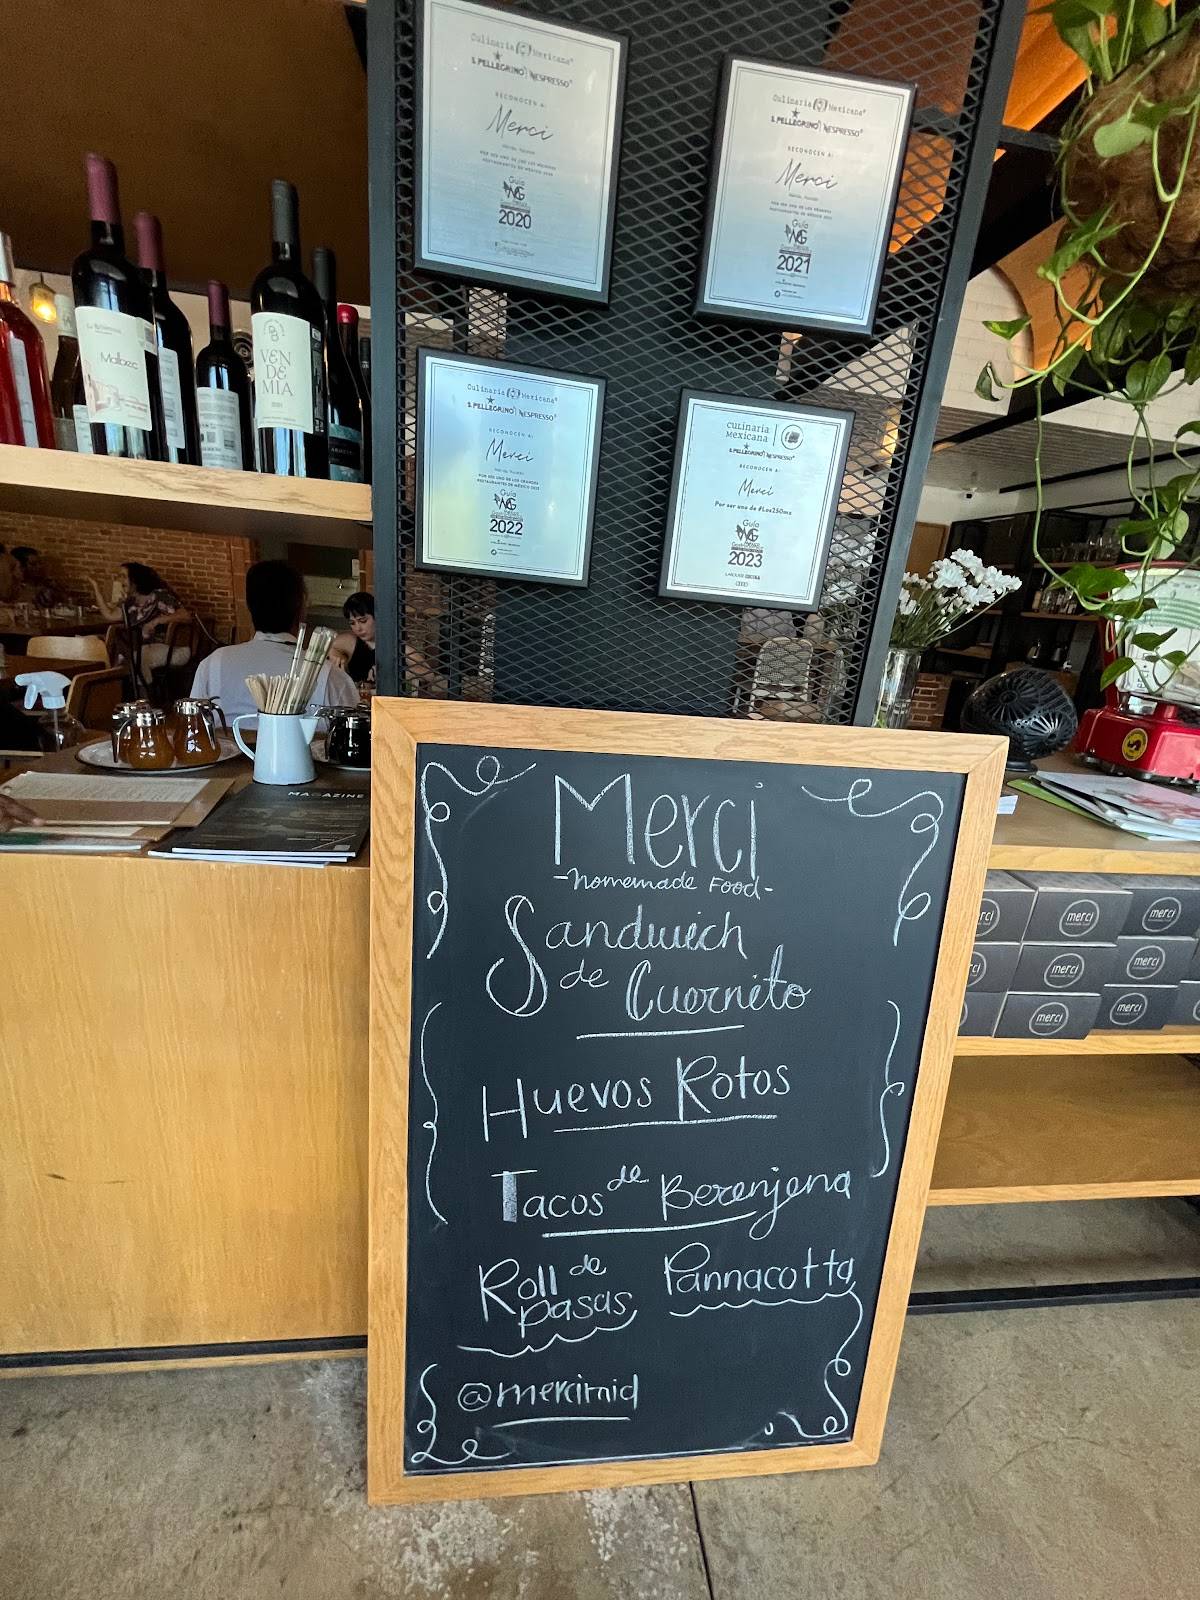 Culinaria Mexicana
S.PELLEGRINO NESPRESSO
RECONOCEN A:
Merci
POR SER UNO DE LOS GRANDES
RESTAURANTES DE MÉXICO 2020
Guía
2020
Culinaria Mexicana
S.PELLEGRINO NESPRESSO
RECONOCEN A:
Merci
POR SER UNO DE LOS GRANDES
RESTAURANTES DE MÉXICO 2021
Guía
2021
Culinaria Mexicana
S.PELLEGRINO NESPRESSO
RECONOCEN A:
Merci
POR SER UNO DE LOS GRANDES
RESTAURANTES DE MÉXICO 2022
Guía
2022
CULINARIA
MEXICANA
S.PELLEGRINO NESPRESSO
RECONOCEN A:
Merci
Por ser uno de #Los250mx
Guía
2023
Malbec
VEN
DE
MIA
MAGAZINE
Merci
-Homemade Food-
Sandwich
de Cuernito
Huevos Rotos
Tacos de Berenjena
Roll de pasas Pannacotta
@mercimid
merci
merci
merci
merci
merci
merci